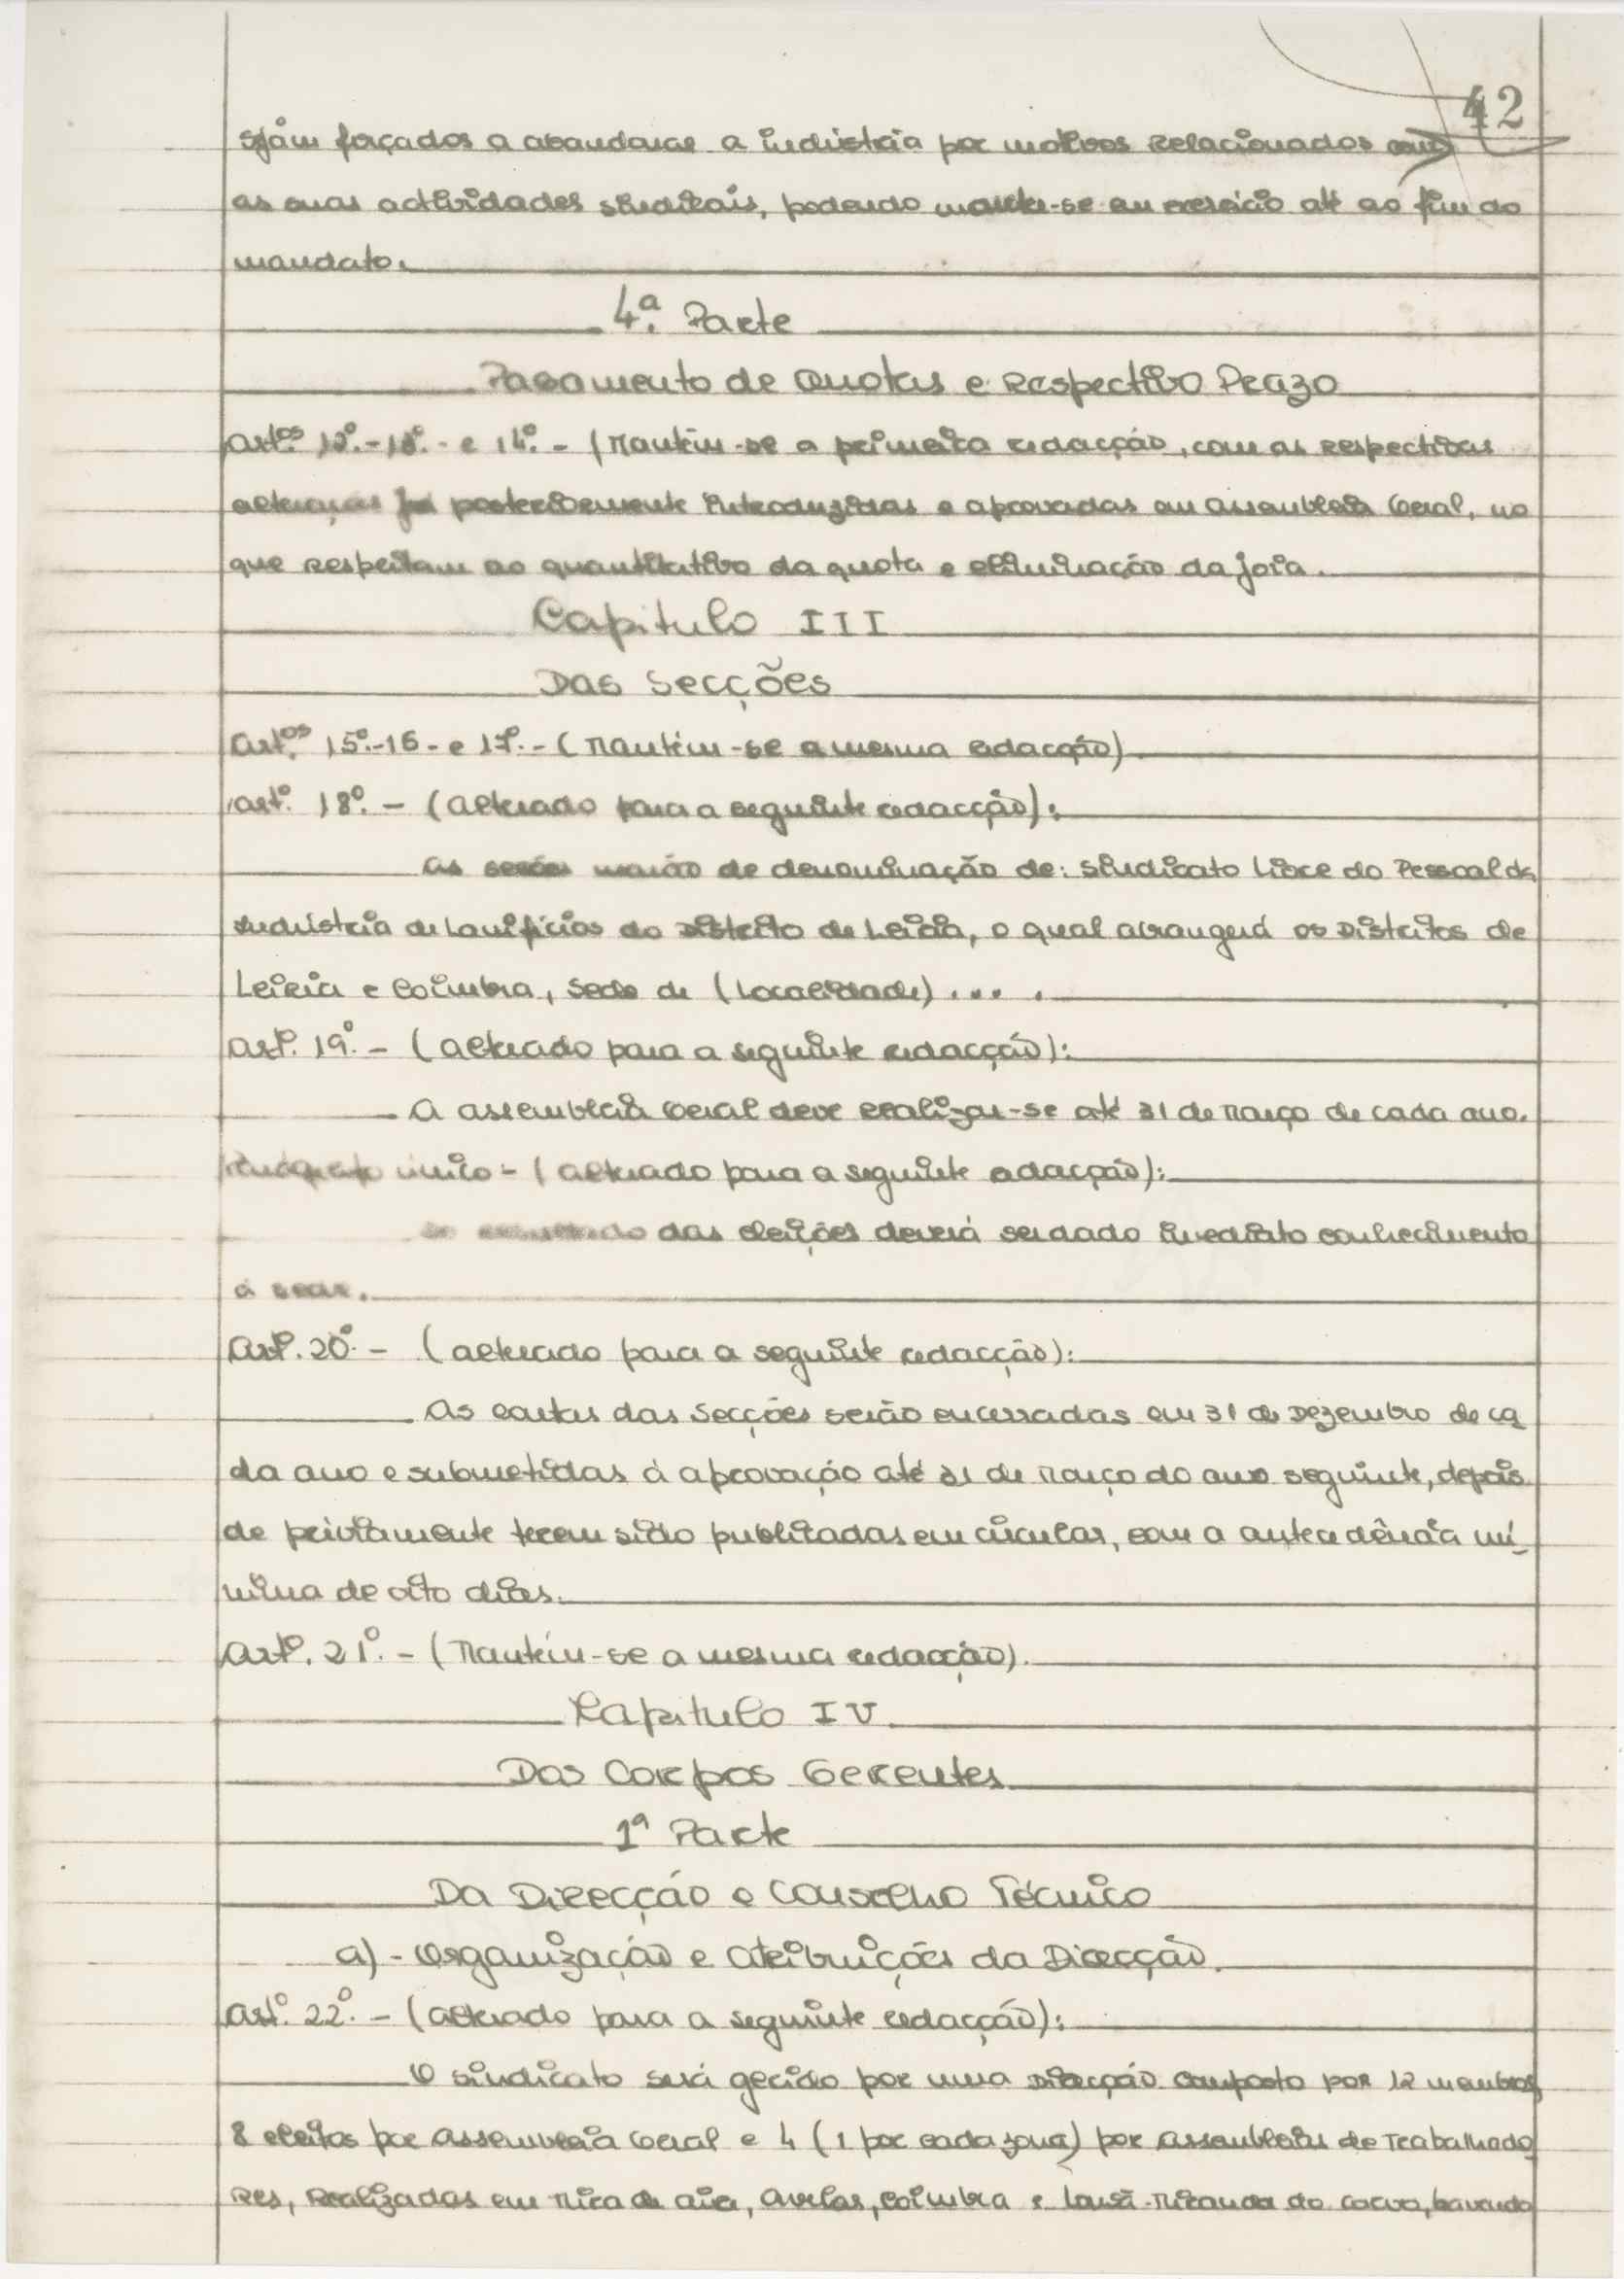 42
sejam forçados a abandonar a indústria por motivos relacionados com
as suas actividades sindicais, podendo manter-se em exercício até ao fim do
mandato.
4ª. Parte
Pagamento de Quotas e Respectivo Prazo
Artºs. 12º.-13º.- e 14º. - (Mantém-se a primeira redacção, com as respectivas
alterações posteriormente introduzidas e aprovadas em Assembleia Geral, no
que respeitam ao quantitativo da quota e eliminação da joia.
Capitulo III
Das Secções
Artºs. 15º.-16- e 17º.- (Mantém-se a mesma redacção)
Artº. 18º. - (Alterado para a seguinte redacção):
As de denominação de: Sindicato Livre do Pessoal da
Indústria de Lanifícios do Distrito de Leiria, o qual abrangerá os Distritos de
Leiria e Coimbra, Sede de (Localidade) ... .
Artº. 19º. - (Alterado para a seguinte redacção):
A Assembleia Geral deve realizar-se até 31 de Março de cada ano.
Parágrafo único - (Alterado para a seguinte redacção):
Do resultado das eleições deverá ser dado imediato conhecimento
à sede.
Artº. 20º. - (Alterado para a seguinte redacção):
As contas das Secções serão encerradas em 31 de Dezembro de ca
da ano e submetidas à aprovação até 31 de Março do ano seguinte, depois
de préviamente terem sido publicadas em circular, com a antecedência mí-
nima de oito dias.
Artº. 21º. - (Mantém-se a mesma redacção).
Capitulo IV
Dos Corpos Gerentes
1ª Parte
Da Direcção e Conselho Técnico
a) - Organização e Atribuições da Direcção.
Artº. 22º. - (Alterado para a seguinte redacção):
O Sindicato será gerido por uma Direcção composto por 12 membros
8 eleitos por Assembleia Geral e 4 (1 por cada zona) por Assembleias de Trabalhado
res, realizadas em Mira de Aire, Avelar, Coimbra e Lousã-Miranda do Corvo, havendo